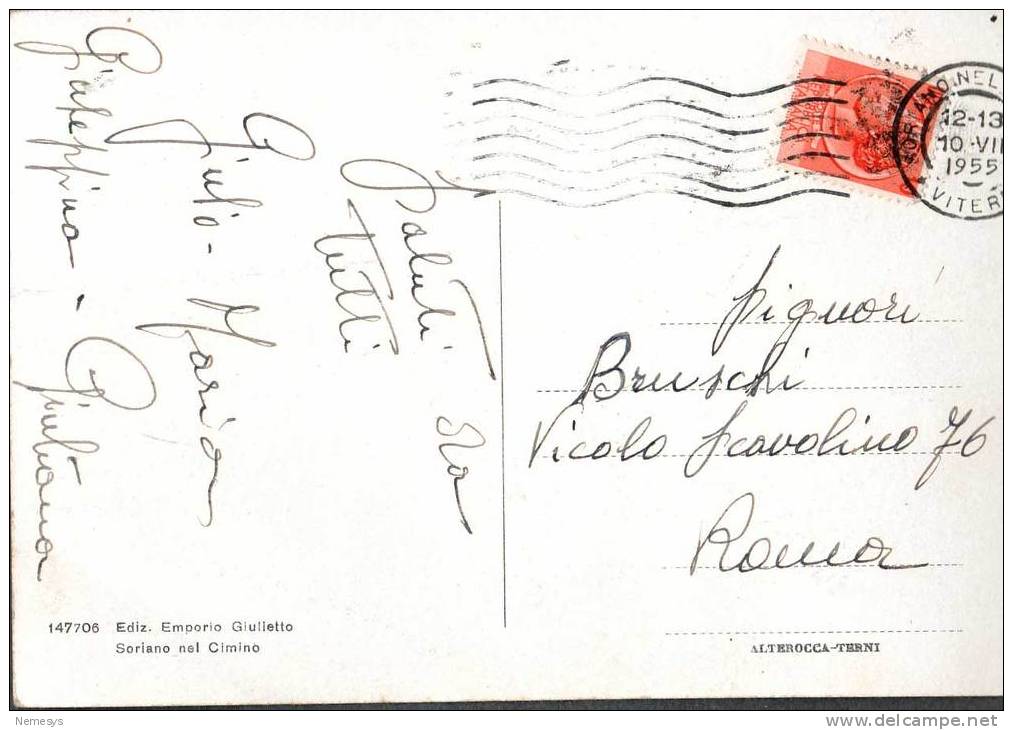 Saluti da
tutti
Giulio - Maria
Giuseppina - Giuliana
SORIANO NEL
12-13
10 - VII
1955
VITER
Signori
Bruschi
Vicolo Scavolino 76
Roma
147706 Ediz. Emporio Giulietto
Soriano nel Cimino
ALTEROCCA-TERNI
Nemesys
www.delcampe.net